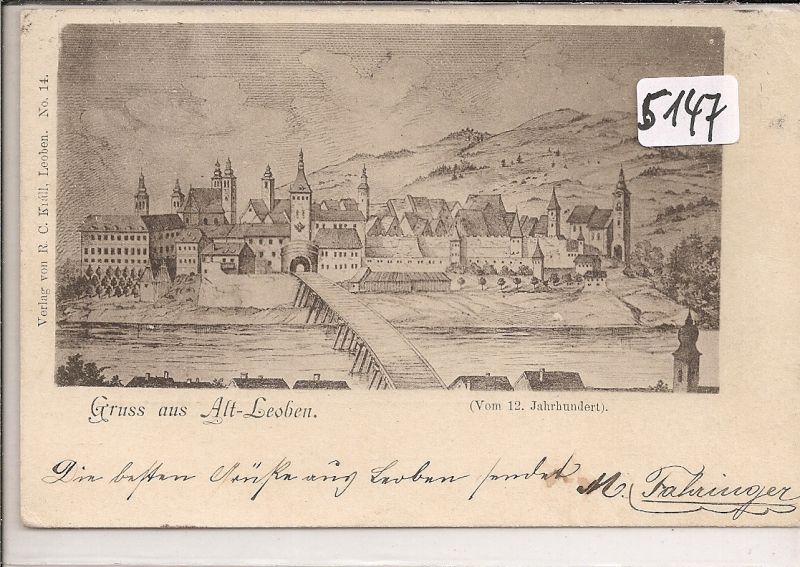 5147
Verlag von R. C. Krüll, Leoben. No. 14.
Gruss aus Alt-Leoben.
(Vom 12. Jahrhundert).
Die besten Grüße aus Leoben sendet M. Fahringer